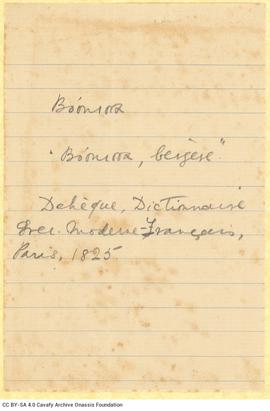 Βόσκισσα
"Βόσκισσα, bergère"
Dehèque, Dictionnaire
Grec-Moderne-Français,
Paris, 1825
CC BY-SA 4.0 Cavafy Archive Onassis Foundation